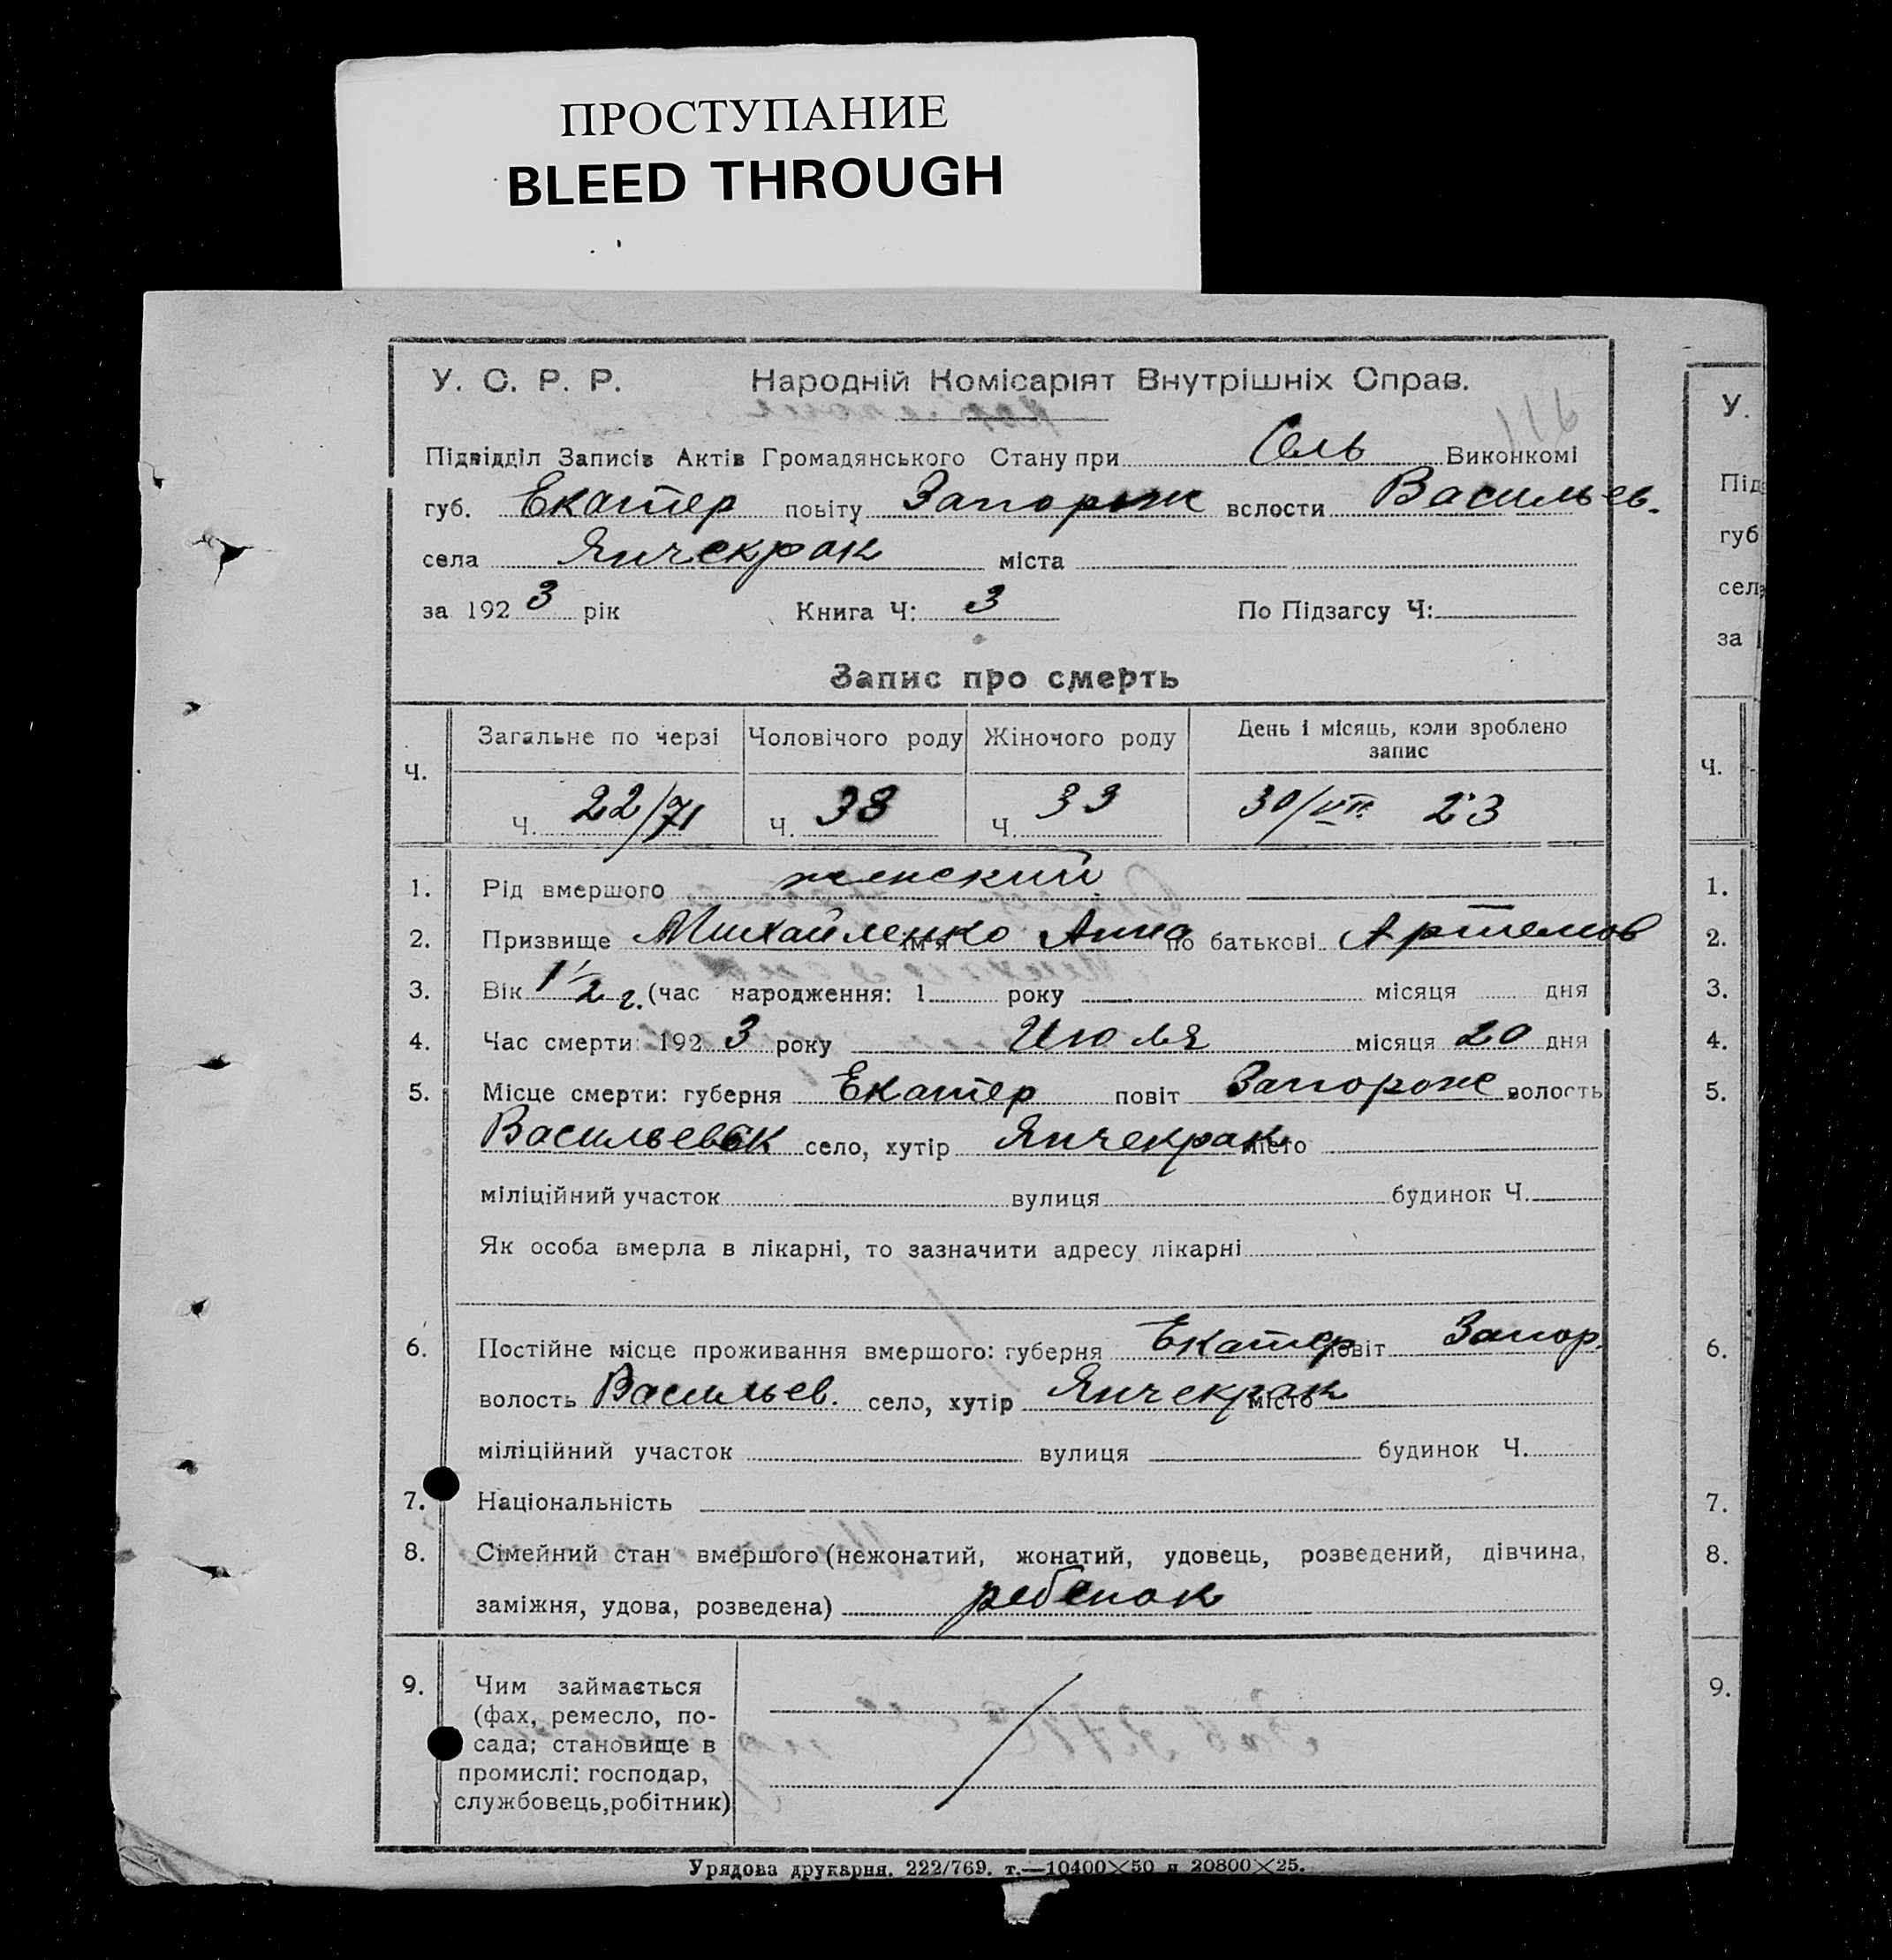 ПРОСТУПАНИЕ
BLEED THROUGH
У. С. Р. Р. Народній Комісаріят Внутрішніх Справ.
Підвідділ Записів Актів Громадянського Стану при Сель Виконкомі
губ. Екатер повіту Запорож волости Васильев.
села Янчекрак міста
за 1923 рік Книга Ч: 3 По Підзагсу Ч:
Запис про смерть
Ч. Загальне по черзі Чоловічого роду Жіночого роду День і місяць, коли зроблено запис
Ч. 22/71 Ч. 38 Ч. 33 30/VII 23
1. Рід вмершого женский
2. Призвище Михайленко ім'я Анна по батькові Артемов
3. Вік 1 1/2 г. (час народження: 1 року місяця дня
4. Час смерти: 1923 року Июля місяця 20 дня
5. Місце смерти: губерня Екатер повіт Запорож волость
Васильевск село, хутір Янчекрак місто
міліційний участок вулиця будинок Ч.
Як особа вмерла в лікарні, то зазначити адресу лікарні
6. Постійне місце проживання вмершого: губерня Екатер повіт Запор.
волость Васильев. село, хутір Янчекрак місто
міліційний участок вулиця будинок Ч.
7. Національність
8. Сімейний стан вмершого (нежонатий, жонатий, удовець, розведений, дівчина,
заміжня, удова, розведена) ребенок
9. Чим займається
(фах, ремесло, по-
сада; становище в
промислі: господар,
службовець, робітник)
Урядова друкарня. 222/769. т.—10400×50 и 20800×25.
У.
Під
губ
села
за 1
Ч.
1.
2.
3.
4.
5.
6.
7.
8.
9.